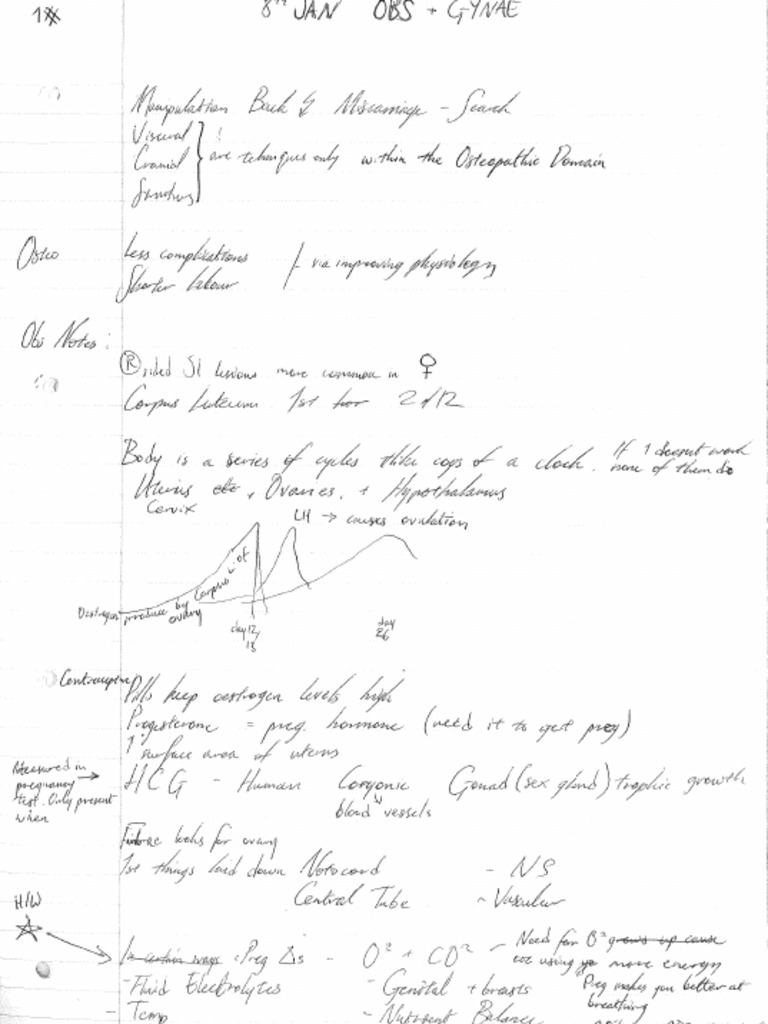 1
8th JAN OBS + GYNAE
Manipulation Back & Miscarriage - Search
Visceral
Cranial } ! are techniques only within the Osteopathic Domain
Osteo
Less complications
Shorter labour
/- via improving physiology
Obs Notes:
(R) sided SI lesions more common in ♀
Corpus Luteum 1st for 2/12
Body is a series of cycles like cogs of a clock. If 1 doesnt work
none of them do
Uterus etc, Ovaries, + Hypothalamus
Cervix
LH → causes ovulation
Oestrogen produce by ovary
Corpus
day 12/13
day 26
Contraceptive Pills keep oestrogen levels high
Progesterone = preg. hormone (need it to get preg)
↑ surface area of uterus
Measured in
pregnancy →
test. Only present
when
HCG - Human Corgonic Gonad (sex gland) trophic growth
blood vessels
Fimbrae looks for ovary
1st things laid down Notocord - NS
Central Tube - Vascular
H/W
In certain ways: Preg Δs - O² + CO² - Need for O² grows up cause
are using more energy
- Fluid Electrolytes - Genital + breasts Preg makes you better at
breathing
- Temp - Nutrient Balance